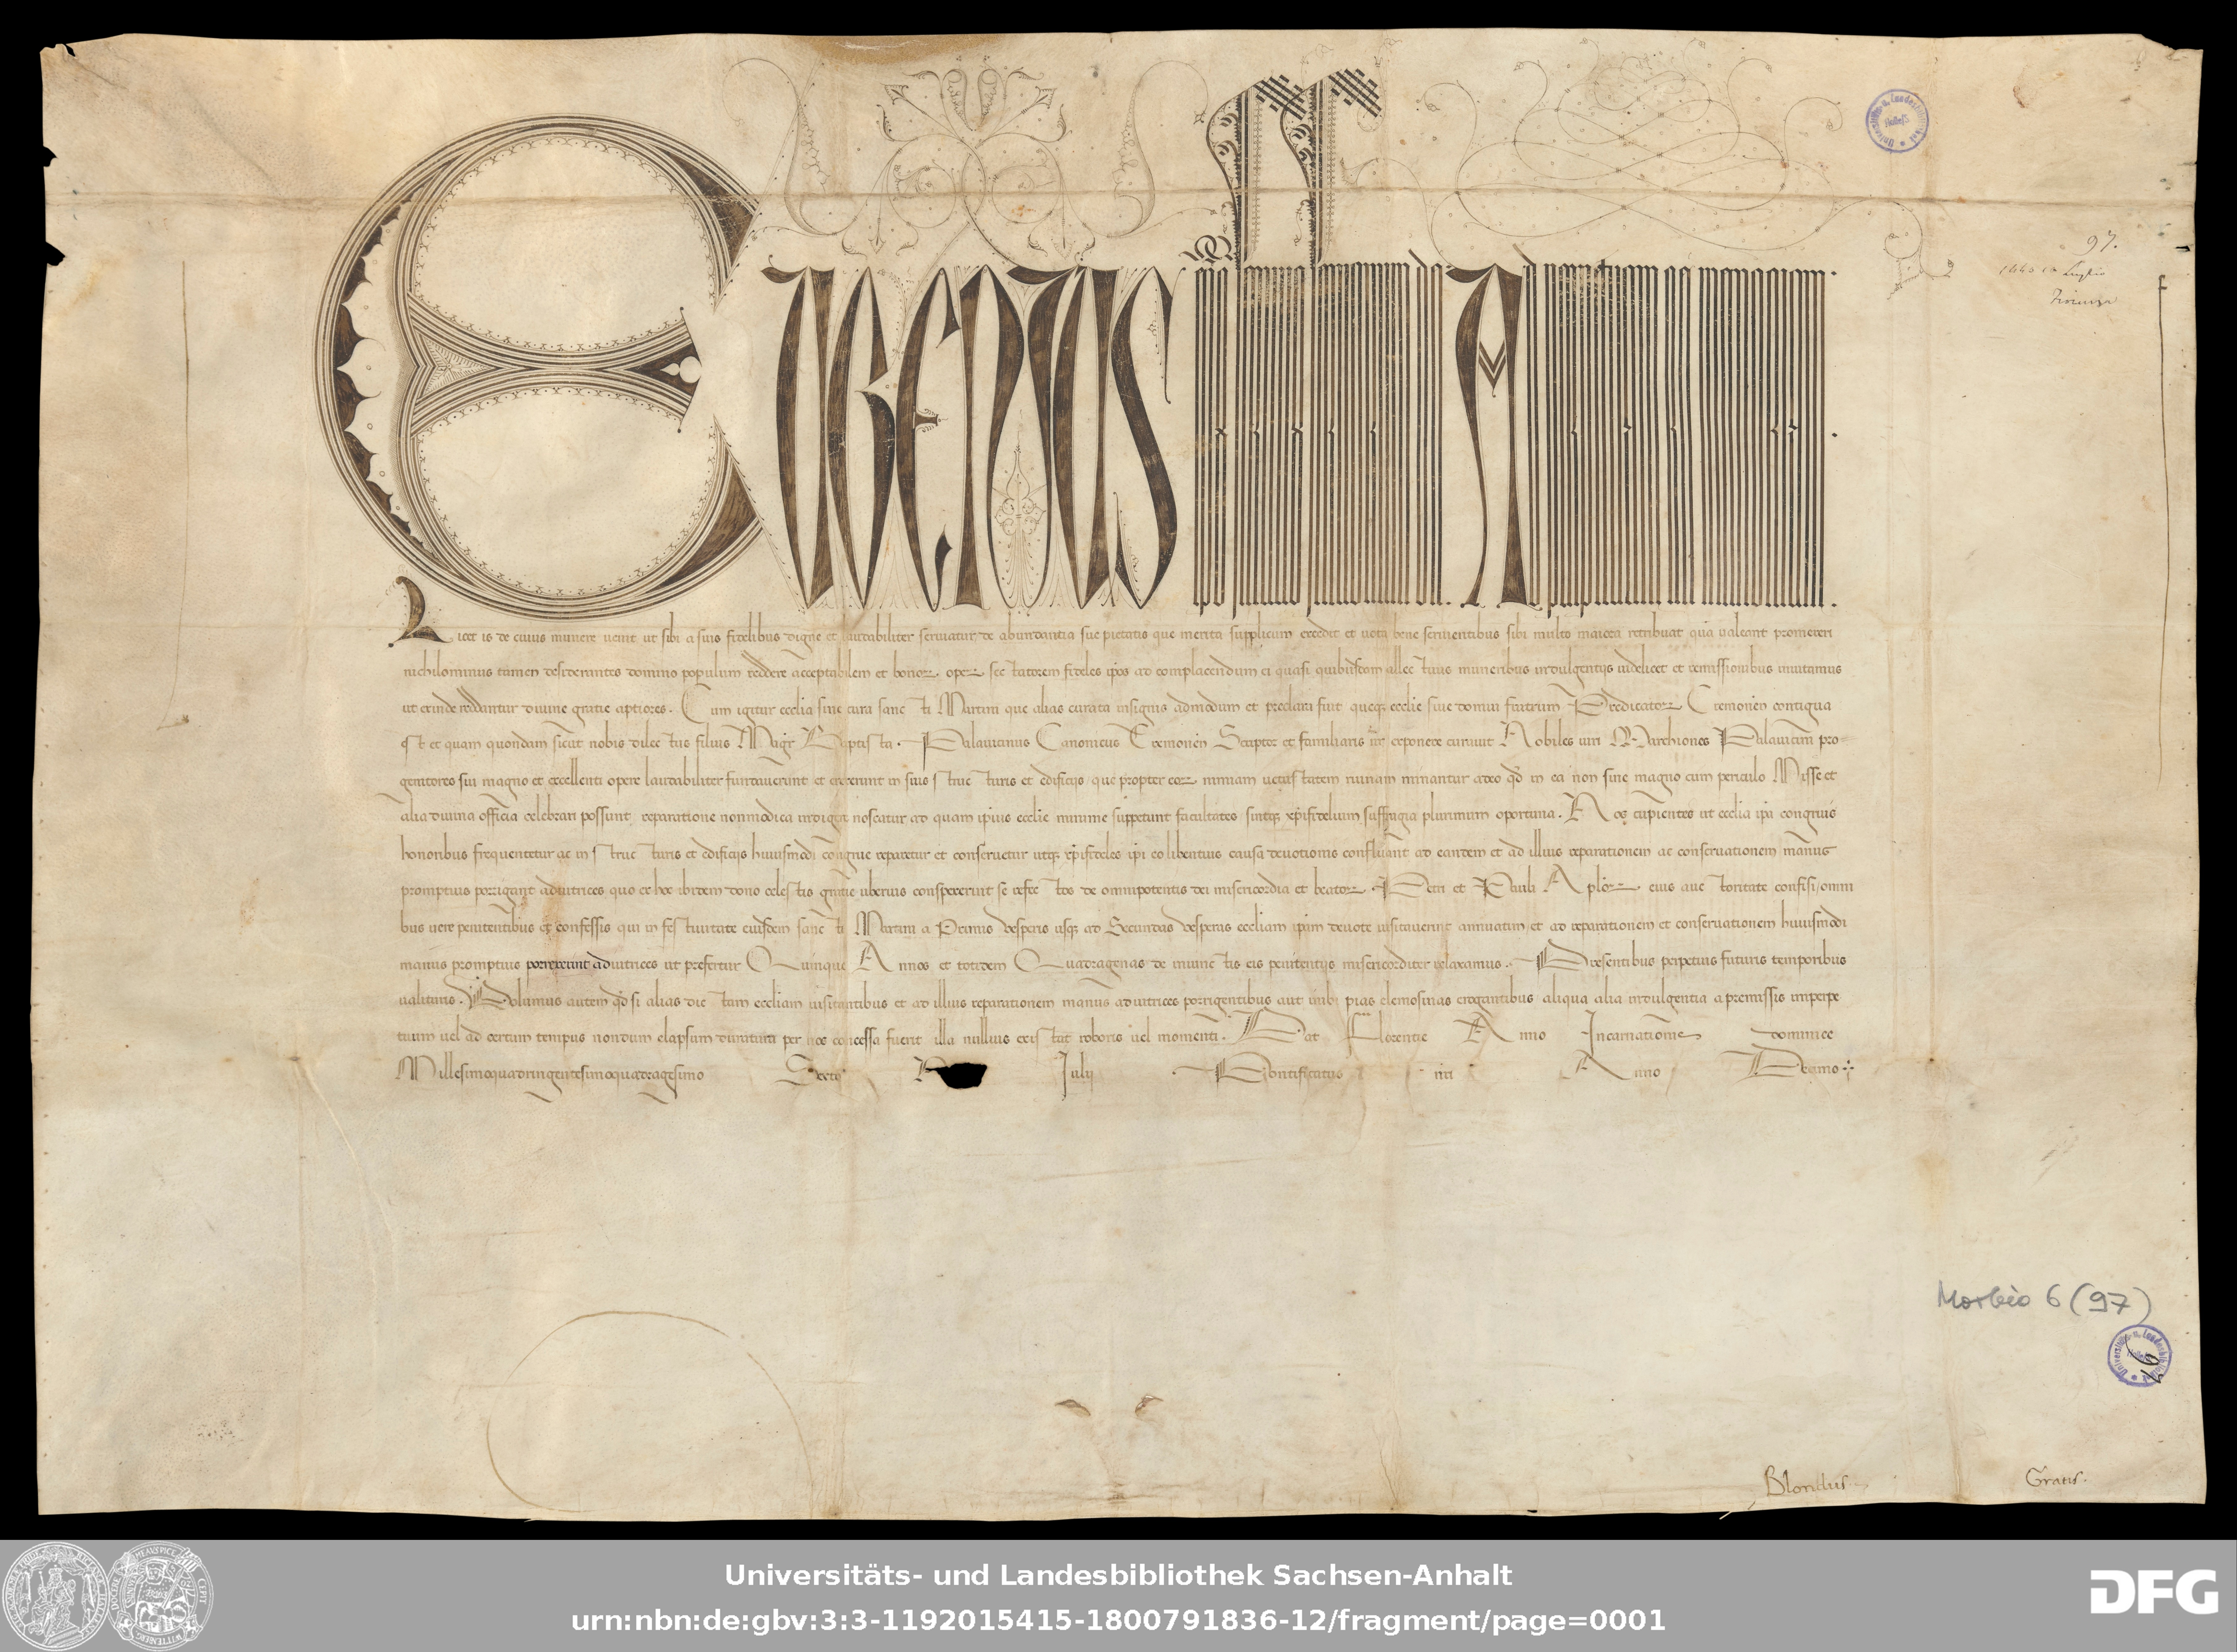 EUGENIUS ep̄s seruus seruorum dei Ad perpetuam rei memoriam.
Licet is de cuius munere uenit ut sibi a suis fidelibus digne et laudabiliter seruiatur de abundantia sue pietatis que merita supplicum excedit et uota bene seruientibus sibi multo maiora retribuat qua ualeant promereri
nichilominus tamen desiderantes domino populum reddere acceptabilem et bonoꝝ opeꝝ sectatorem fideles ip̄os ad complacendum ei quasi quibusdam allectiuis muneribus indulgentijs uidelicet et remissionibus inuitamus
ut exinde reddantur diuine gratie aptiores. Cum igitur eccl̄ia sine cura sancti Martini que alias curata insignis admodum et preclara fuit queqꝫ eccl̄ie siue domui fratrum Predicatoꝝ Cremonen̄ contigua
est et quam quondam sicut nobis dilectus filius Magr̄ Baptista Palauicinus Canonicus Cremonen̄ Scriptor et familiaris nr̄ exponere curauit Nobiles uiri Marchiones Palauicini pro-
genitores sui magno et excellenti opere laudabiliter fundauerunt et erexerunt in suis structuris et edificijs que propter eoꝝ nimiam uetustatem ruinam minantur adeo qd̄ in ea non sine magno cum periculo Misse et
alia diuina officia celebrari possunt reparatione nonmodica indigere noscatur ad quam ip̄ius eccl̄ie minime suppetunt facultates sintqꝫ xp̄ifidelium suffragia plurimum oportuna. Nos cupientes ut eccl̄ia ip̄a congruis
honoribus frequentetur ac in structuris et edificijs huiusmodi congrue reparetur et conseruetur utqꝫ xp̄ifideles ip̄i eo libentius causa deuotionis confluant ad eandem et ad illius reparationem ac conseruationem manus
promptius porrigant adiutrices quo ex hoc ibidem dono celestis gratie uberius conspexerint se refectos de omnipotentis dei misericordia et beatoꝝ Petri et Pauli Aplōꝝ eius auctoritate confisi omni
bus uere penitentibus et confessis qui in festiuitate eiusdem sancti Martini a Primis vesperis usqꝫ ad Secundas vesperas eccl̄iam ip̄am deuote uisitauerint annuatim et ad reparationem et conseruationem huiusmodi
manus promptius porrexerint adiutrices ut prefertur Quinque Annos et totidem Quadragenas de iniunctis eis penitentijs misericorditer relaxamus. Presentibus perpetuis futuris temporibus
ualituris. Volumus autem qd̄ si alias dictam eccl̄iam uisitantibus et ad illius reparationem manus adiutrices porrigentibus aut inibi pias elemosinas erogantibus aliqua alia indulgentia a premissis imperpe
tuum uel ad certum tempus nondum elapsum duratura per nos concessa fuerit illa nullius existat roboris uel momenti. Dat Florentie Anno Incarnationis dominice
Millesimoquadringentesimoquadragesimo Sexto Julij Pontificatus nr̄i Anno Decimo
97.
Luglio
Firenze
Morbio 6 (97)
97
Blondus.
Gratis.
Universitäts- und Landesbibliothek Sachsen-Anhalt
urn:nbn:de:gbv:3:3-1192015415-1800791836-12/fragment/page=0001
DFG